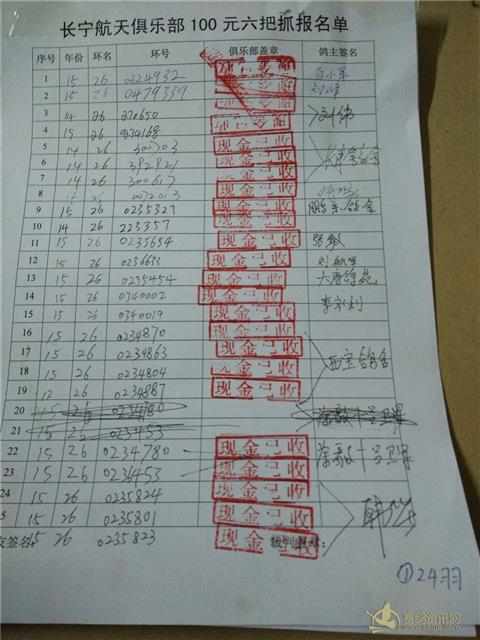 长宁航天俱乐部 100 元六把抓报名单
序号 年份 环名 环号 俱乐部盖章 鸽主签名
1 15 26 0224932
2 15 26 0479339
3 14 26 220650 刘伟
4 15 26 0234168
5 14 26 300703 现金已收
6 14 26 392821 现金已收
7 14 26 300617 现金已收
8 15 26 0072013 现金已收
9 15 26 0235327 现金已收
10 14 26 223357 现金已收
11 15 26 0235654 现金已收
12 15 26 0236633 现金已收
13 15 26 0235454 现金已收
14 15 26 0340002 现金已收 李永利
15 15 26 0340019 现金已收
16 15 26 0234870 现金已收
17 15 26 0234863 现金已收 西宝鸽舍
18 15 26 0234804 现金已收
19 12 26 0234887 现金已收
20 15 26 0234780
21 15 26 0234453
22 15 26 0234780 现金已收
23 15 26 0231453 现金已收
24 15 26 0235824 现金已收
5 15 26 0235801 现金已收
签名: 15 26 0235823 现金已收 裁判
①24羽
赛鸽资讯网